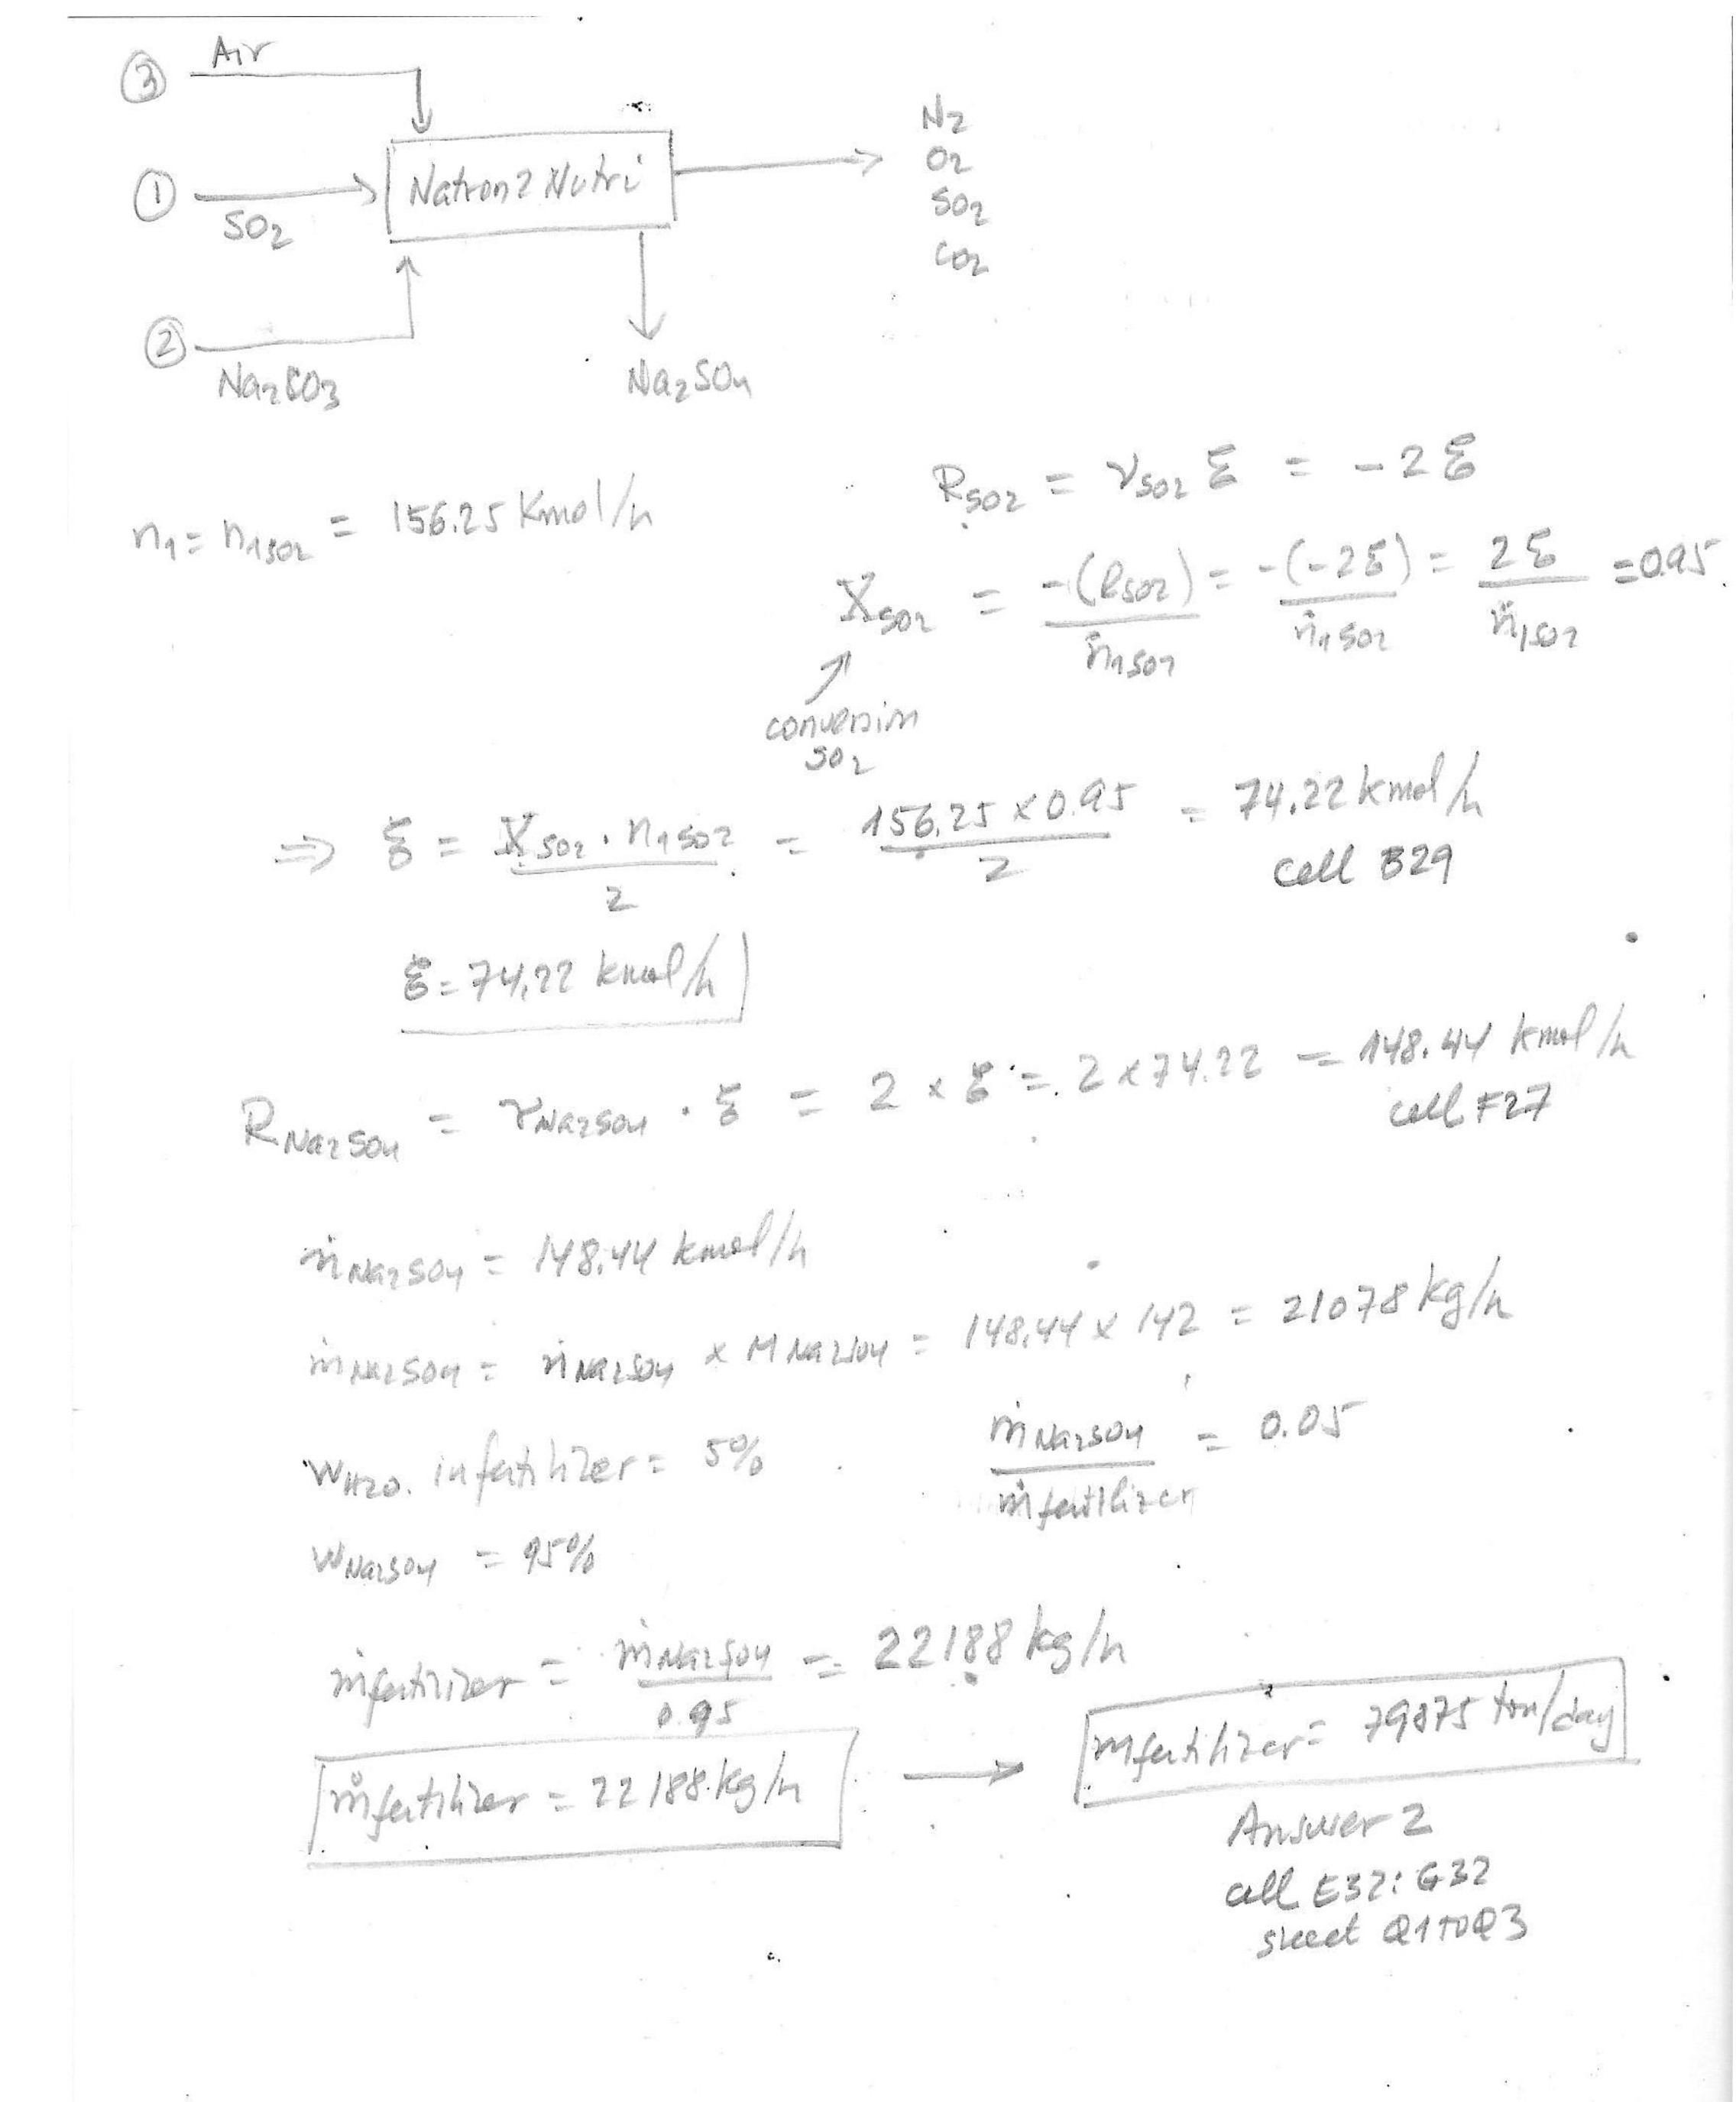 ③ Air
① SO2
Natron2Nutri
N2
O2
SO2
CO2
② Na2CO3
Na2SO4
n1 = n1SO2 = 156.25 Kmol/h
RSO2 = νSO2 ξ = -2ξ
XSO2 = -(RSO2)/ṅ1SO2 = -(-2ξ)/ṅ1SO2 = 2ξ/ṅ1SO2 = 0.95
conversion
SO2
⇒ ξ = XSO2 · n1SO2 / 2 = 156.25 x 0.95 / 2 = 74.22 kmol/h
cell B29
ξ = 74.22 kmol/h
RNa2SO4 = νNa2SO4 · ξ = 2 x ξ = 2 x 74.22 = 148.44 kmol/h
cell F27
ṅNa2SO4 = 148.44 kmol/h
ṁNa2SO4 = ṅNa2SO4 x MNa2SO4 = 148.44 x 142 = 21078 kg/h
WH2O in fertilizer = 5% ṁNa2SO4/ṁfertilizer = 0.05
WNa2SO4 = 95%
ṁfertilizer = ṁNa2SO4/0.95 = 22188 kg/h
ṁfertilizer = 22188 kg/h → ṁfertilizer = 79875 ton/day
Answer 2
cell E32:G32
sheet Q1TOQ3